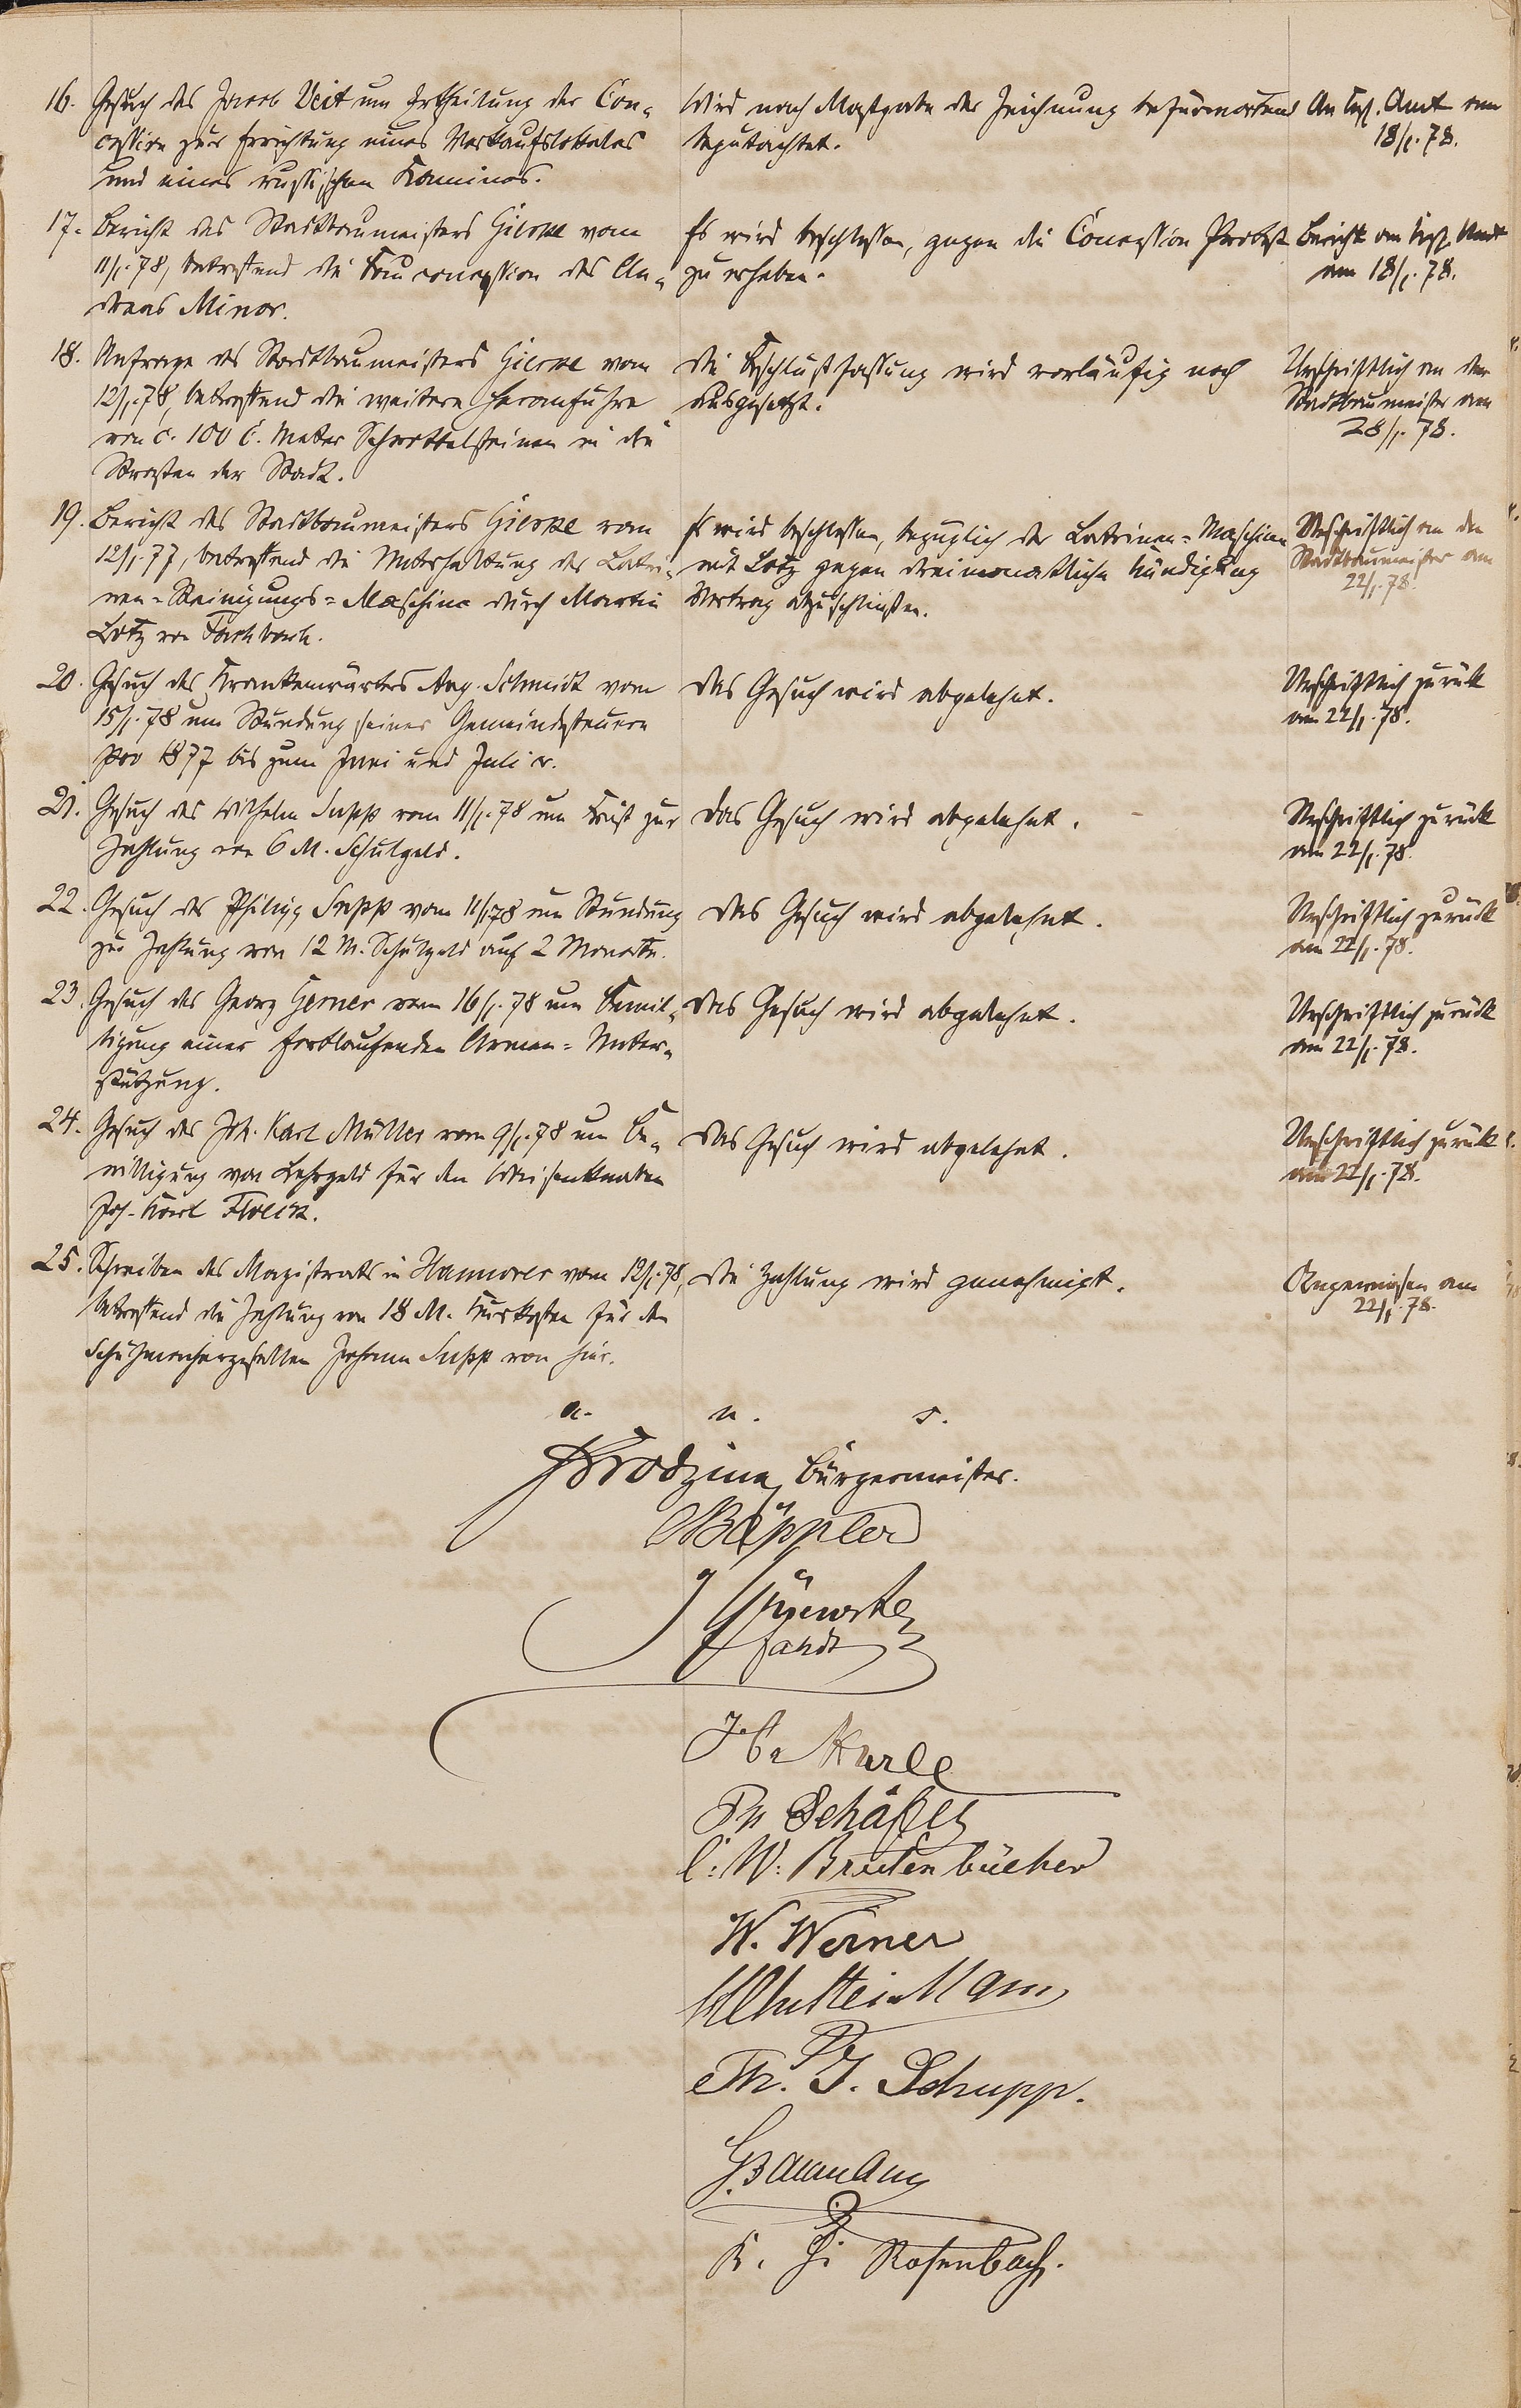 16. Gesuch des Jacob Veit um Ertheilung der Con-
cession zur Errichtung eines Verkaufslokales
und eines russischen Kamines.
Wird nach Maßgabe der Zeichnung befürwortend
begutachtet.
An Kgl. Amt am
18/1. 78.
17. Bericht des Stadtbaumeisters Gierke vom
11/1. 78, betreffend die Bauconcession des An-
dreas Minor.
Es wird beschlossen, gegen die Concession Protest
zu erheben.
Bericht an Kgl. Amt
am 18/1. 78.
18. Anfrage des Stadtbaumeisters Gierke vom
12/1. 78, betreffend die weitere Heranfuhre
von c. 100 C. Meter Schrottelsteinen in die
Straßen der Stadt.
Die Beschlußfassung wird vorläufig noch
ausgesetzt.
Urschriftlich an den
Stadtbaumeister am
28/1. 78.
19. Bericht des Stadtbaumeisters Gierke vom
12/1. 77, betreffend die Unterhaltung der Latri-
nen-Reinigungs-Maschine durch Martin
Lotz von Fachbach.
Es wird beschlossen, bezüglich der Latrinen-Maschine
mit Lotz gegen dreimonatliche Kündigung
Vertrag abzuschließen.
Urschriftlich an den
Stadtbaumeister am
22/1. 78.
20. Gesuch des Krankenwärters Aug. Schmidt vom
15/1. 78 um Stundung seiner Gemeindesteuern
pro 1877 bis zum Juni und Juli c.
Das Gesuch wird abgelehnt.
Urschriftlich zurück
am 22/1. 78.
21. Gesuch des Wilhelm Supp vom 11/1. 78 um Frist zur
Zahlung von 6 M. Schulgeld.
Das Gesuch wird abgelehnt.
Urschriftlich zurück
am 22/1. 78.
22. Gesuch des Philipp Supp vom 11/1 78 um Stundung
zur Zahlung von 12 M. Schulgeld auf 2 Monate.
Das Gesuch wird abgelehnt.
Urschriftlich zurück
am 22/1. 78.
23. Gesuch des Georg Gemer vom 16/1. 78 um Bewil-
ligung einer fortlaufenden Armen-Unter-
stützung.
Das Gesuch wird abgelehnt.
Urschriftlich zurück
am 22/1. 78.
24. Gesuch des Joh. Karl Müller vom 9/1. 78 um Be-
willigung von Lehrgeld für den Waisenknaben
Joh. Karl Flöck.
Das Gesuch wird abgelehnt.
Urschriftlich zurück
am 22/1. 78.
25. Schreiben des Magistrats in Hannover vom 12/1. 78,
betreffend die Zahlung von 18 M. Kurkosten für den
Schuhmachergesellen Johann Supp von hier.
Die Zahlung wird genehmigt.
Angewiesen am
22/1. 78.
a. u. s.
Bürgermeister.
Bäppler
Ph Schäfer
C. W. Breitenbücher
W. Werner
Th. J. Schupp.
G. Baumann
K. Rosenbach.